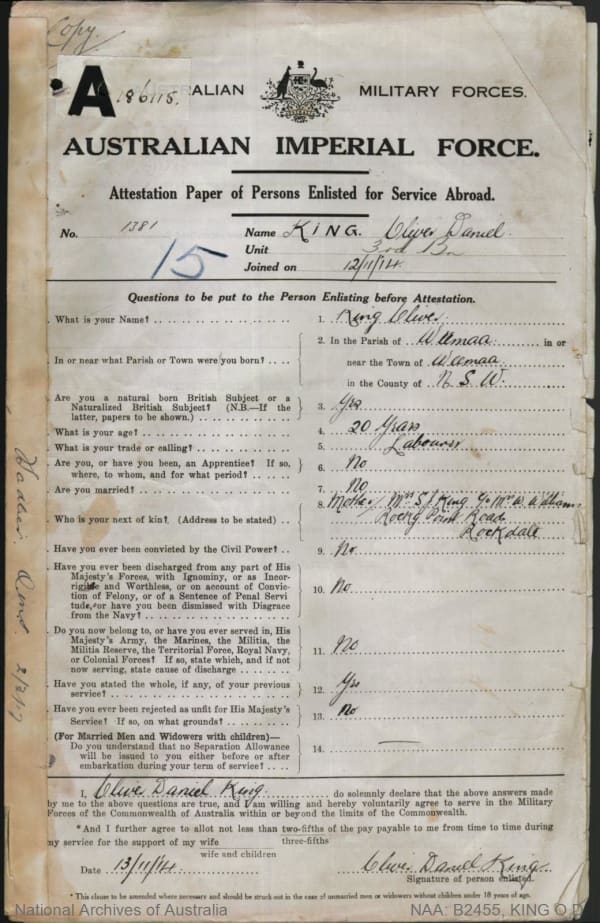 Copy.
A 186115. ALIAN MILITARY FORCES.
AUSTRALIAN IMPERIAL FORCE.
Attestation Paper of Persons Enlisted for Service Abroad.
No. 1381 Name KING. Oliver Daniel.
15 Unit 3rd Bn
Joined on 12/11/14
Questions to be put to the Person Enlisting before Attestation.
. What is your Name? 1. King Oliver
2. In the Parish of in or
. In or near what Parish or Town were you born? near the Town of
in the County of N S W.
. Are you a natural born British Subject or a
Naturalized British Subject? (N.B.—If the 3. Yes
latter, papers to be shown.)
. What is your age? 4. 20 Years
. What is your trade or calling? 5. Labourer
. Are you, or have you been, an Apprentice? If so, 6. No
where, to whom, and for what period?
. Are you married? 7. No
8. Mother Mrs S J King c/o Mr W. Williams
. Who is your next of kin? (Address to be stated) Rocky Point Road
Rockdale
. Have you ever been convicted by the Civil Power? 9. No.
. Have you ever been discharged from any part of His
Majesty's Forces, with Ignominy, or as Incor-
rigible and Worthless, or on account of Convic- 10. No
tion of Felony, or of a Sentence of Penal Servi
tude, or have you been dismissed with Disgrace
from the Navy?
. Do you now belong to, or have you ever served in, His
Majesty's Army, the Marines, the Militia, the
Militia Reserve, the Territorial Force, Royal Navy, 11. No
or Colonial Forces? If so, state which, and if not
now serving, state cause of discharge
. Have you stated the whole, if any, of your previous 12. Yes
service?
. Have you ever been rejected as unfit for His Majesty's 13. No
Service? If so, on what grounds?
. (For Married Men and Widowers with children)—
Do you understand that no Separation Allowance 14. —
will be issued to you either before or after
embarkation during your term of service?
I, Oliver Daniel King. do solemnly declare that the above answers made
by me to the above questions are true, and I am willing and hereby voluntarily agree to serve in the Military
Forces of the Commonwealth of Australia within or beyond the limits of the Commonwealth.
*And I further agree to allot not less than two-fifths of the pay payable to me from time to time during
three-fifths
my service for the support of my wife
wife and children
Date 13/11/14 Oliver Daniel King.
Signature of person enlisted.
*This clause to be amended where necessary and should be struck out in the case of unmarried men or widowers without children under 18 years of age.
National Archives of Australia NAA: B2455, KING O D